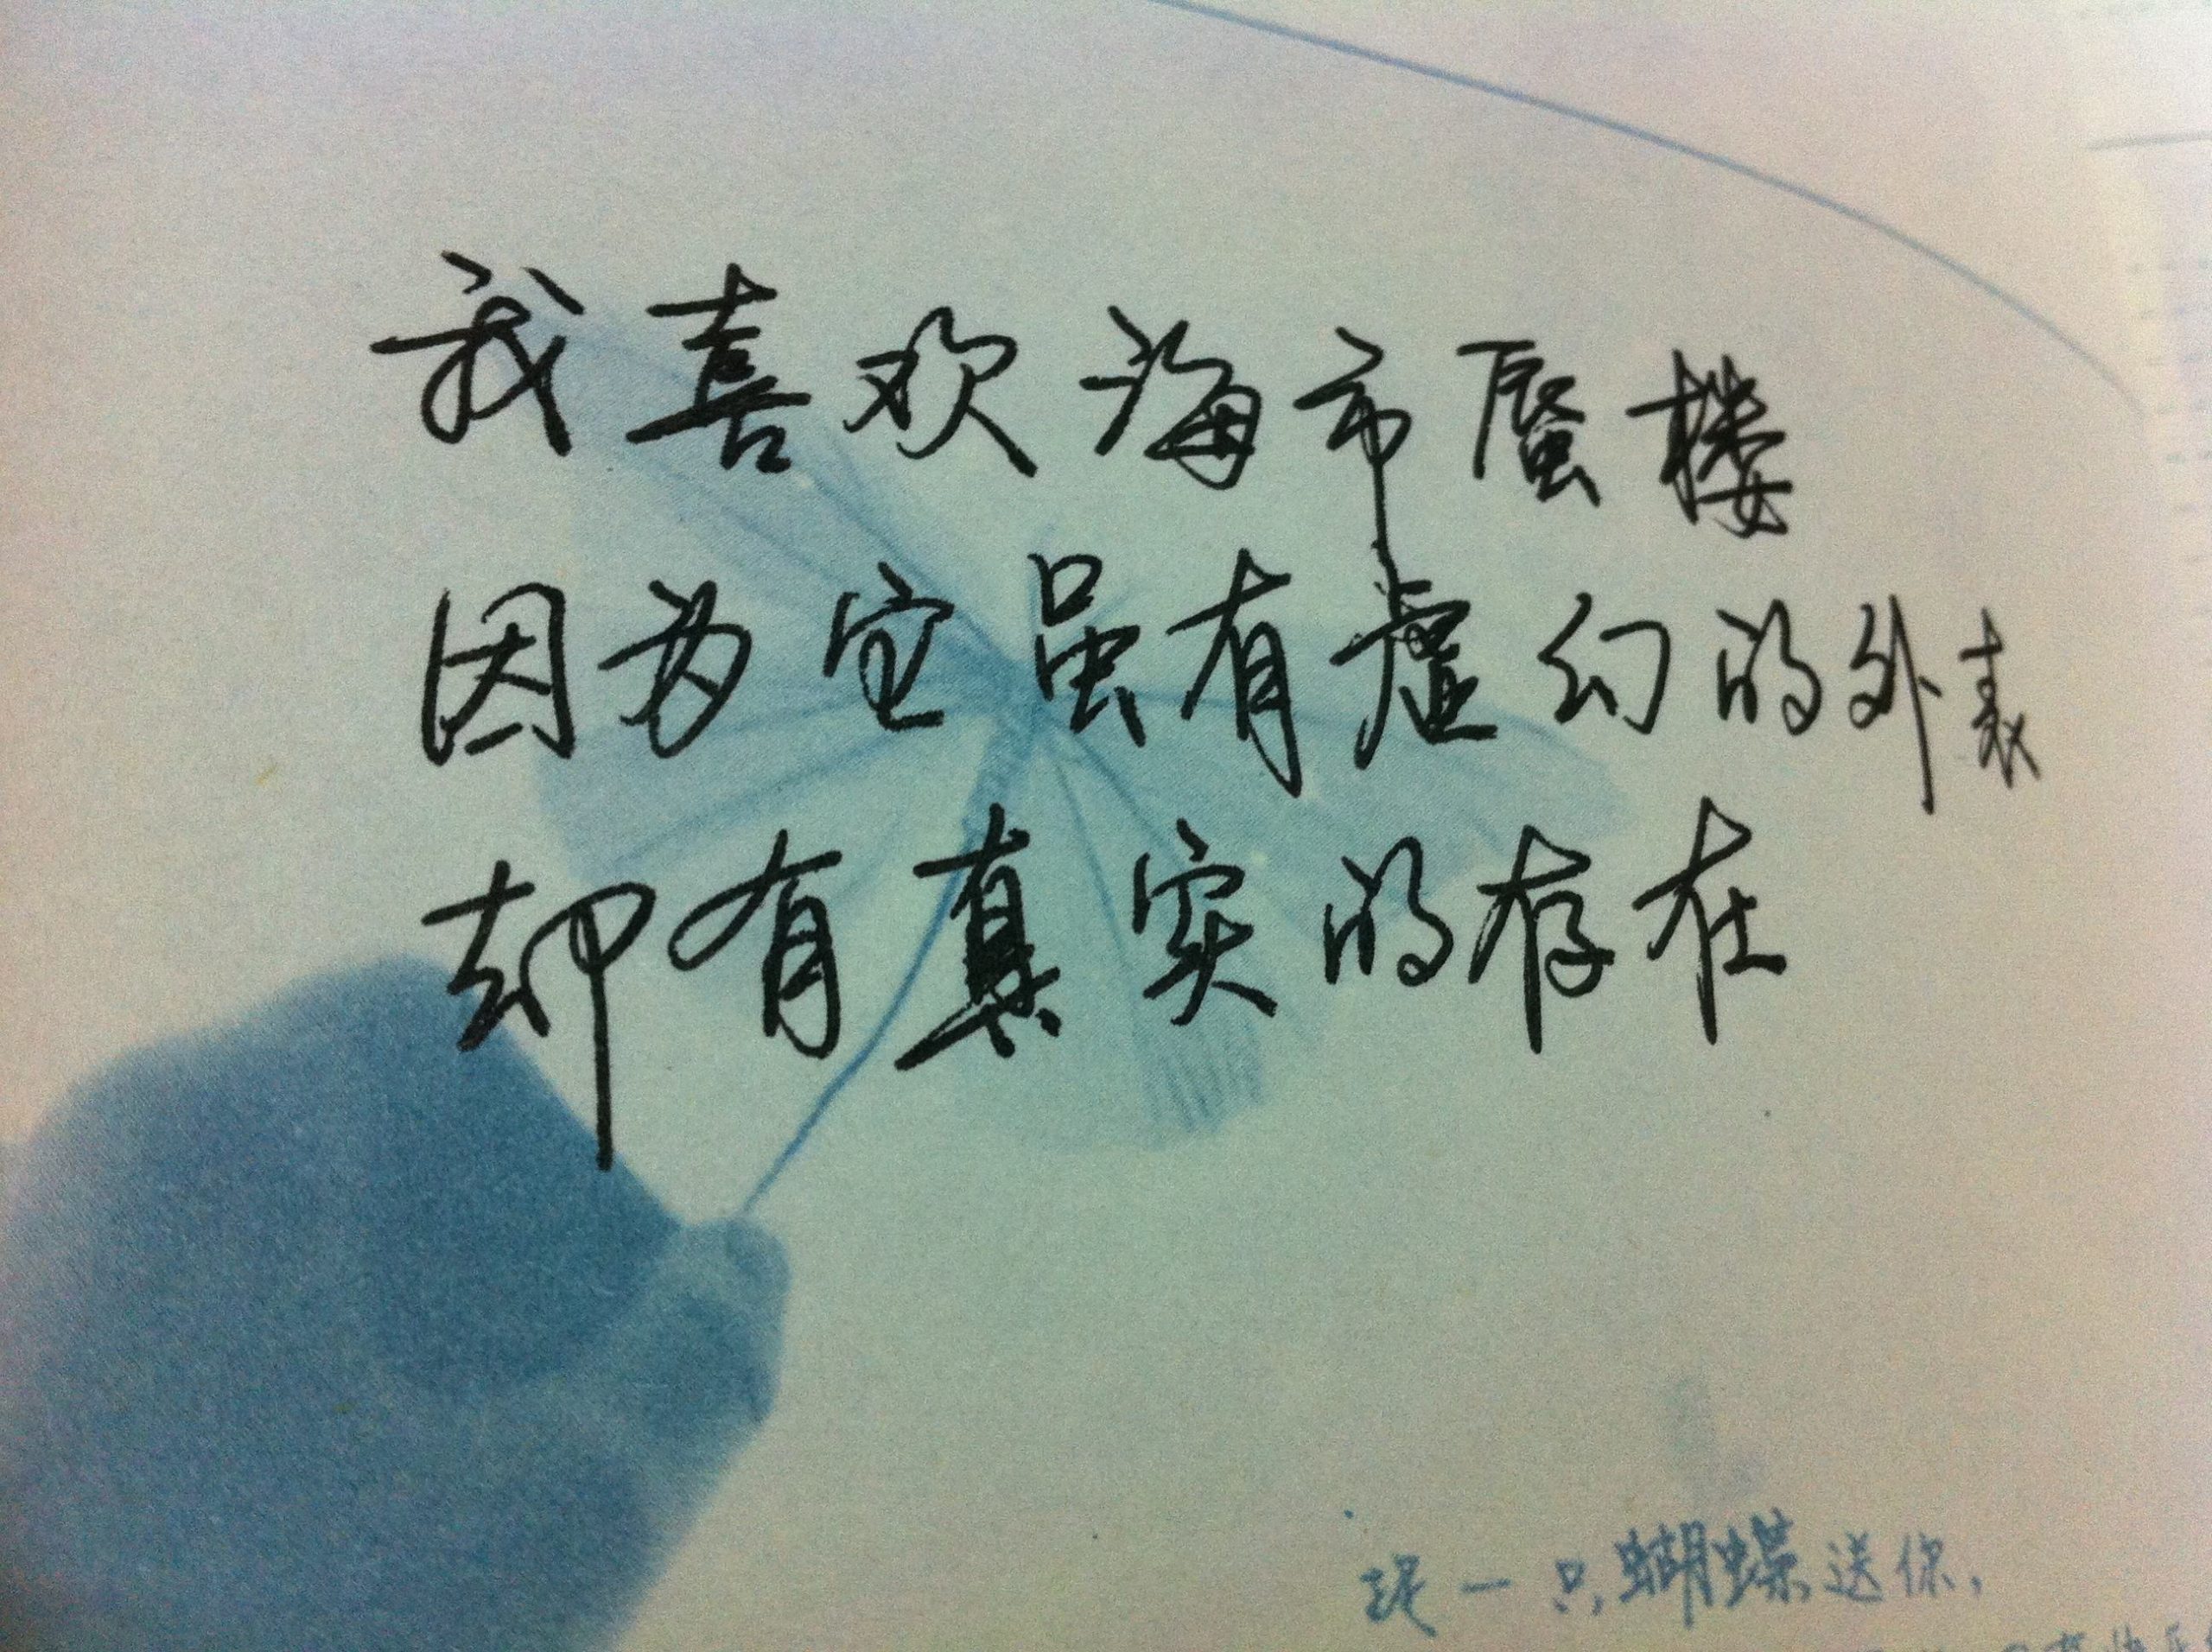 我喜欢海市蜃楼
因为它虽有虚幻的外表
却有真实的存在
一只蝴蝶送你,